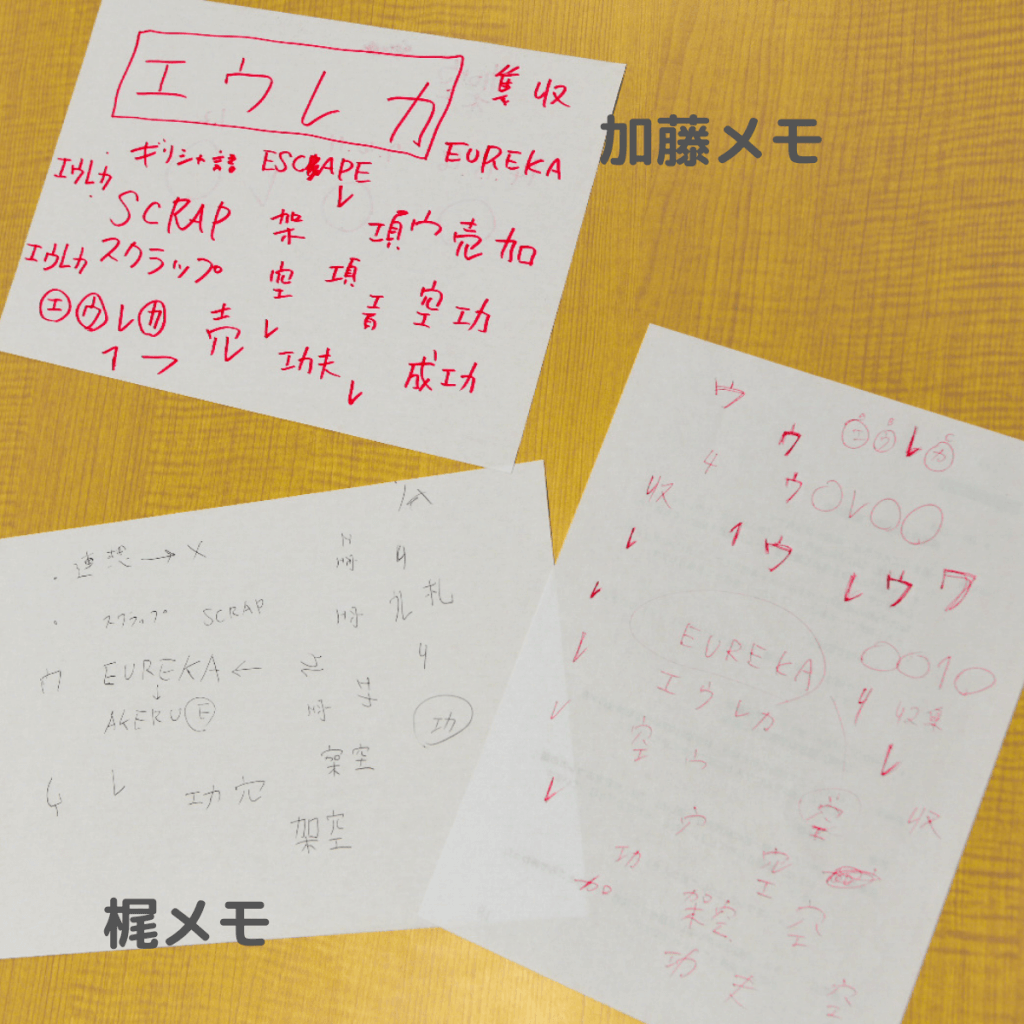 エウレカ
隻 収
加藤メモ
ギリシャ語 ESCAPE EUREKA
エウレカ
レ
SCRAP 架 項ウ売加
エウレカ スクラップ 空 項 音 空功
エウレカ 売 レ
1 つ 功夫 成功
レ
ウ
ウ エウレカ
4 ウ○レ○○
収 1ウ
レ レウワ
レ
EUREKA ○○1○
レ エウレカ 4 収隻
レ 空 ウ レ
レ 空 収
ウ
功 空
加 エ
架空 空
功夫 空
・連想→×
4
・スクラップ SCRAP 札
ウ EUREKA← 4
↓
AKERUE 功
功
架空
レ 功穴
架空
梶メモ